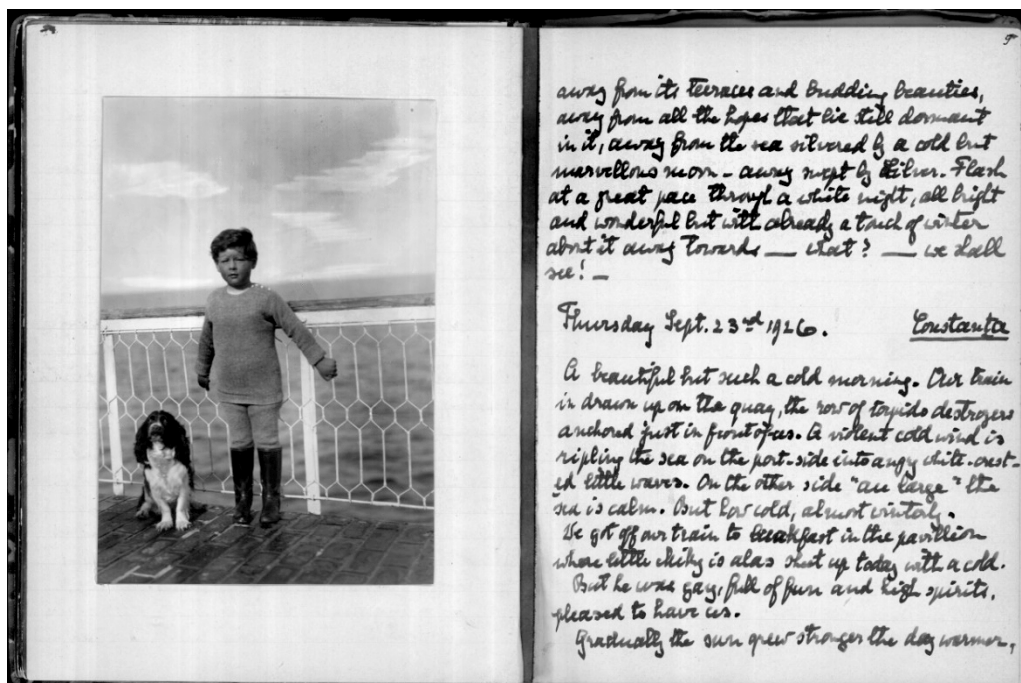 away from its terraces and budding beauties,
away from all the hopes that lie still dormant
in it, away from the sea silvered by a cold but
marvellous moon - away swept by silver. Flash
at a great pace through a white night, all bright
and wonderful but with already a touch of winter
about it away towards — what? — we shall
see! -
Thursday Sept. 23rd 1926. Constantza
A beautiful but such a cold morning. Our train
is drawn up on the quay, the row of torpido destroyers
anchored just in front of us. A violent cold wind is
ripling the sea on the port-side into angry white-crest-
ed little waves. On the other side "au large" the
sea is calm. But how cold, almost winterly.
We got off our train to breakfast in the pavillion
where little Miky is alas shut up today with a cold.
But he was gay, full of fun and high spirits,
pleased to have us.
Gradually the sun grew stronger the day warmer,